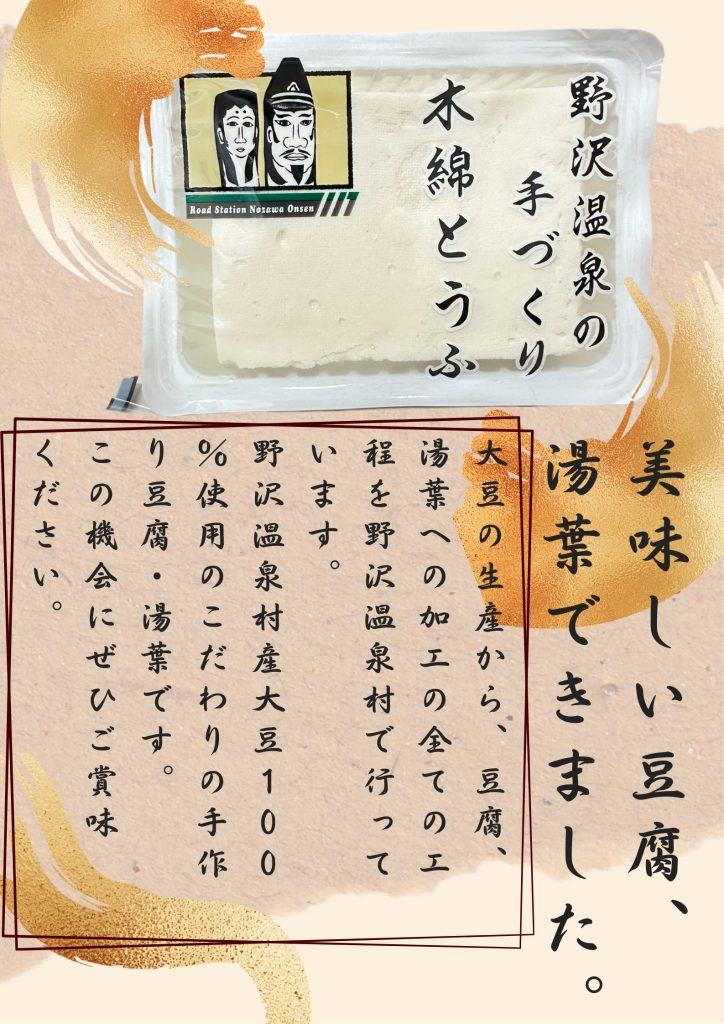 野沢温泉の
手づくり
木綿とうふ
Road Station Nozawa Onsen
美味しい豆腐、
湯葉できました。
大豆の生産から、豆腐、
湯葉への加工の全ての工
程を野沢温泉村で行って
います。
野沢温泉村産大豆100
%使用のこだわりの手作
り豆腐・湯葉です。
この機会にぜひご賞味
ください。